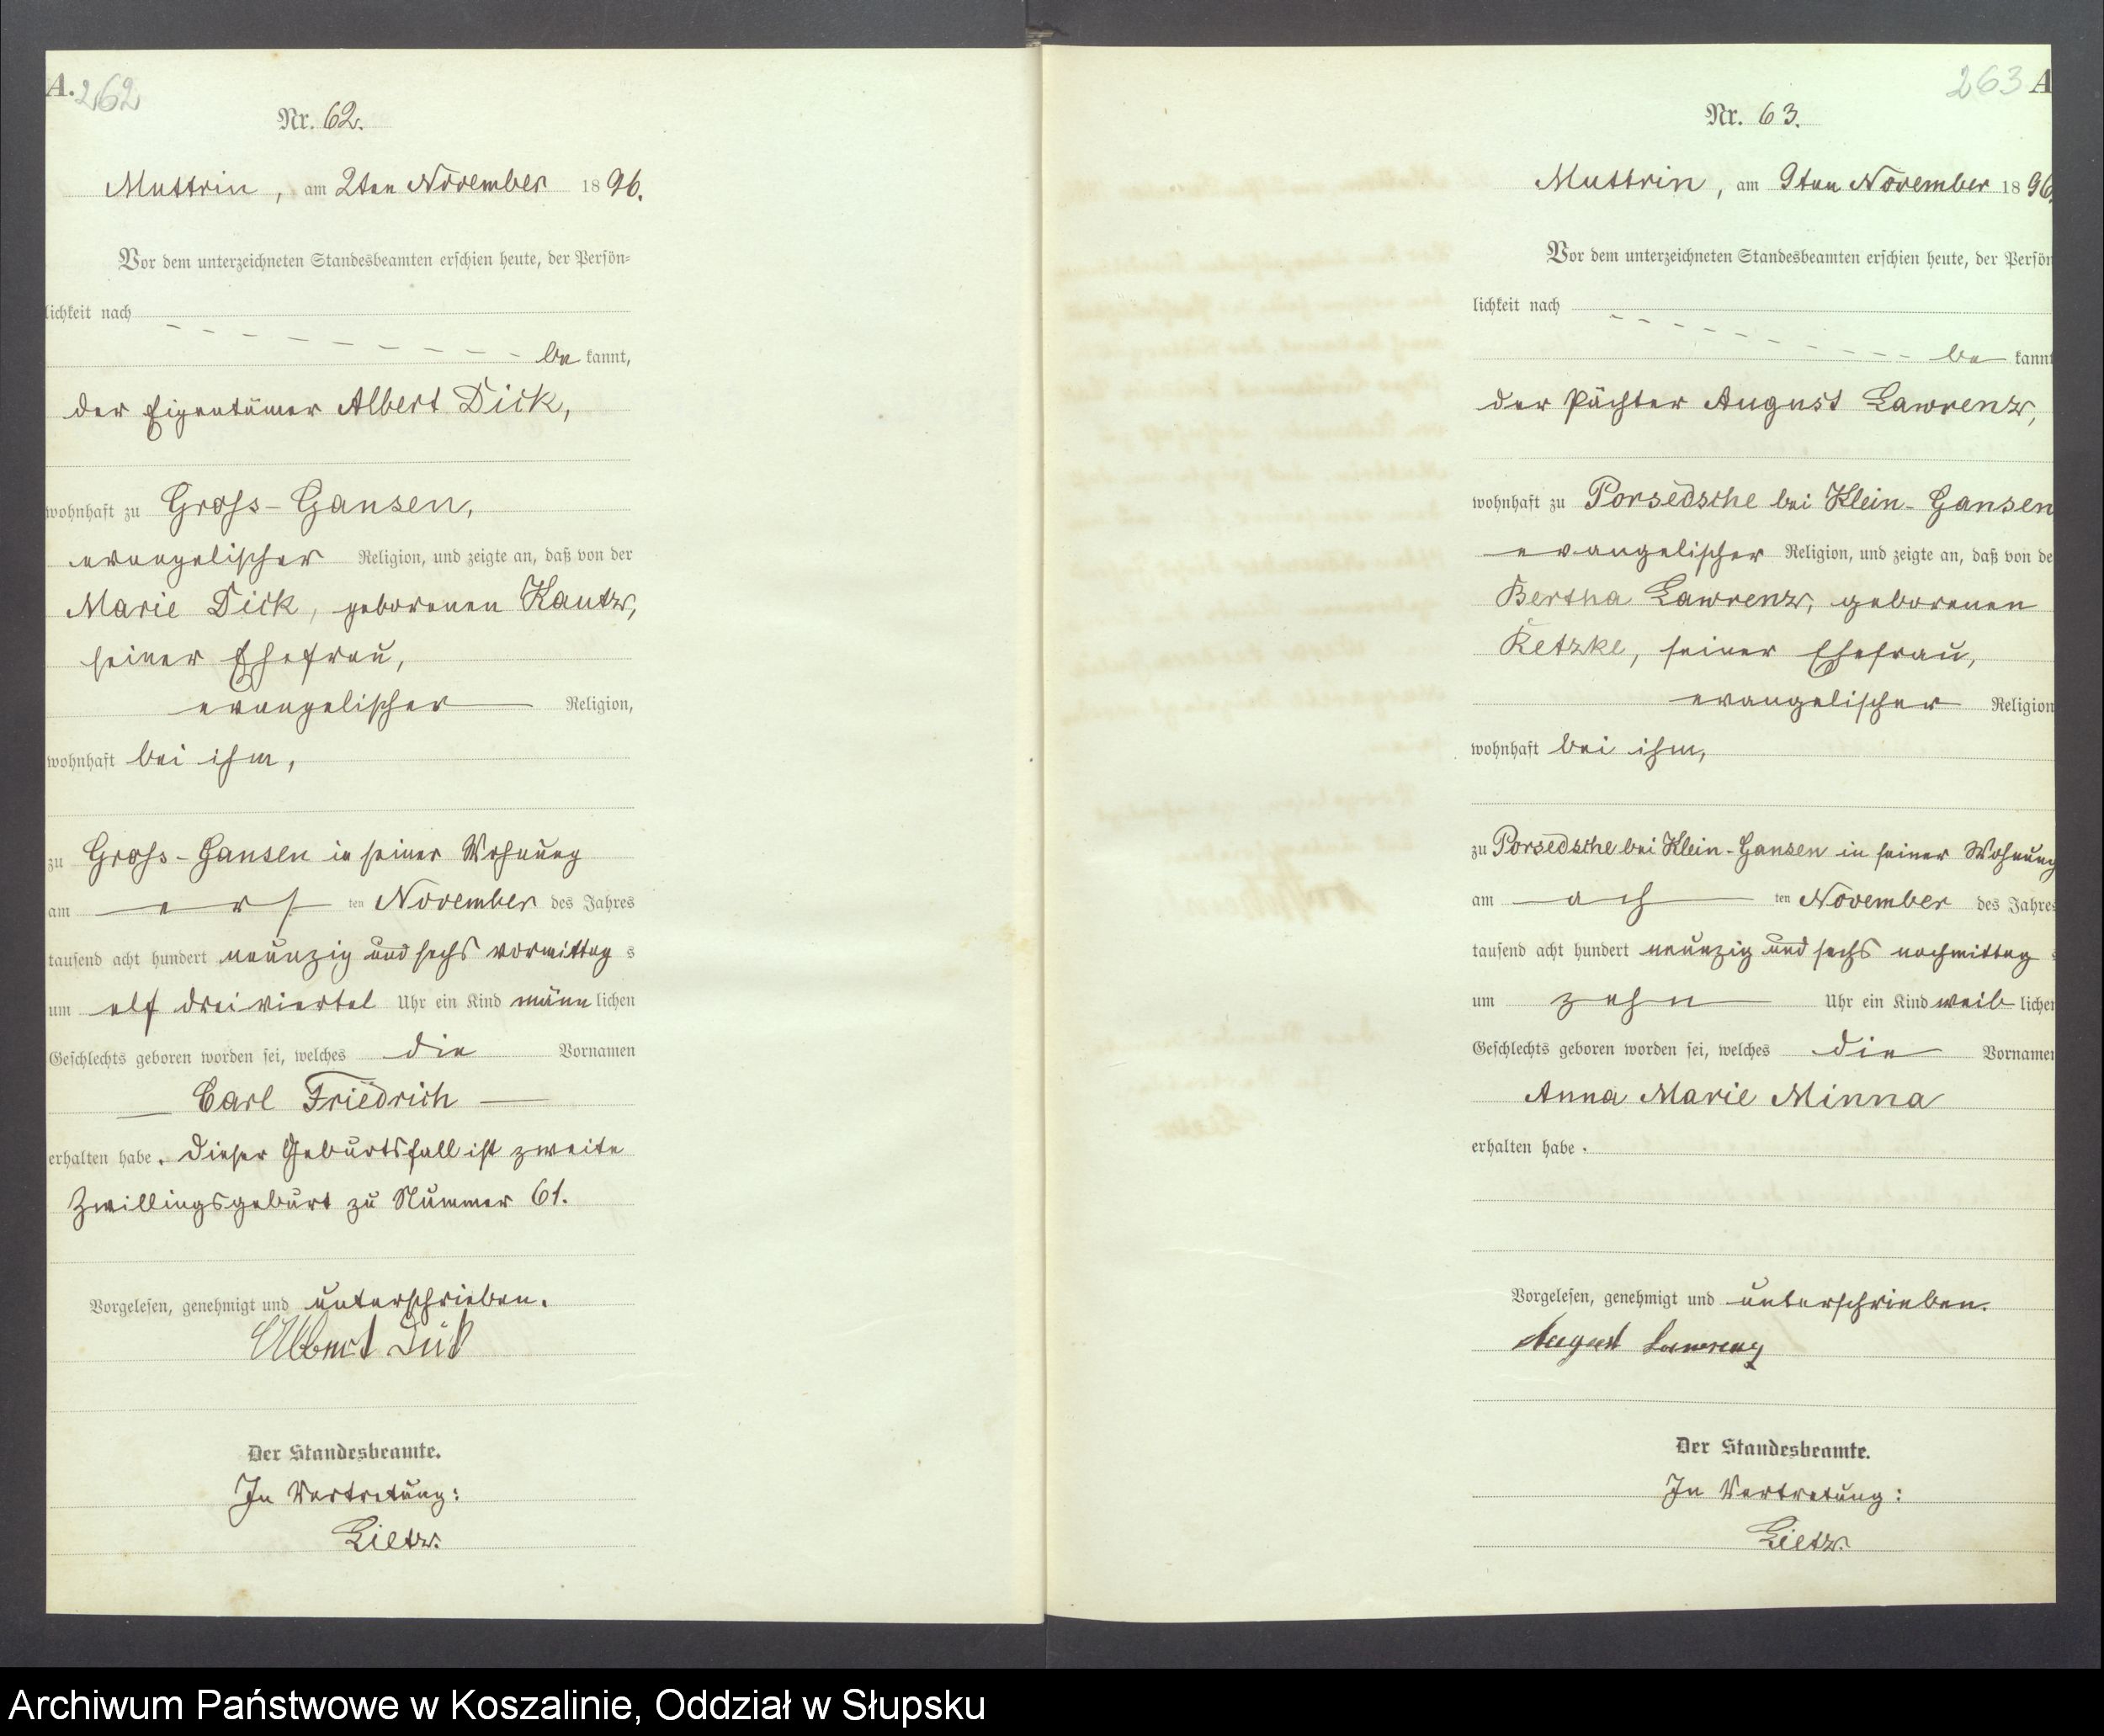 A. 262
Nr. 62.
Muttrin, am 2ten November 1896.
Vor dem unterzeichneten Standesbeamten erschien heute, der Persön-
lichkeit nach
be kannt,
der Eigentümer Albert Dick,
wohnhaft zu Gross-Gansen,
evangelischer Religion, und zeigte an, daß von der
Marie Dick, geborenen Kautz,
seiner Ehefrau,
evangelischer Religion,
wohnhaft bei ihm,
zu Gross-Gansen in seiner Wohnung
am ers ten November des Jahres
tausend acht hundert neunzig und sechs vormittag s
um elf dreiviertel Uhr ein Kind männ lichen
Geschlechts geboren worden sei, welches die Vornamen
Carl Friedrich
erhalten habe. Dieser Geburtsfall ist zweite
Zwillingsgeburt zu Nummer 61.
Vorgelesen, genehmigt und unterschrieben.
Albert Dick
Der Standesbeamte.
In Vertretung:
Lietz.
263 A
Nr. 63.
Muttrin, am 9ten November 1896.
Vor dem unterzeichneten Standesbeamten erschien heute, der Persön
lichkeit nach
be kannt
der Pächter August Lawrenz,
wohnhaft zu Porsedsche bei Klein-Gansen
evangelischer Religion, und zeigte an, daß von de
Bertha Lawrenz, geborenen
Retzke, seiner Ehefrau,
evangelischer Religion
wohnhaft bei ihm,
zu Porsedsche bei Klein-Gansen in seiner Wohnung
am ach ten November des Jahres
tausend acht hundert neunzig und sechs nachmittag s
um zehn Uhr ein Kind weib lichen
Geschlechts geboren worden sei, welches die Vornamen
Anna Marie Minna
erhalten habe.
Vorgelesen, genehmigt und unterschrieben.
August Lawrenz
Der Standesbeamte.
In Vertretung:
Lietz.
Archiwum Państwowe w Koszalinie, Oddział w Słupsku